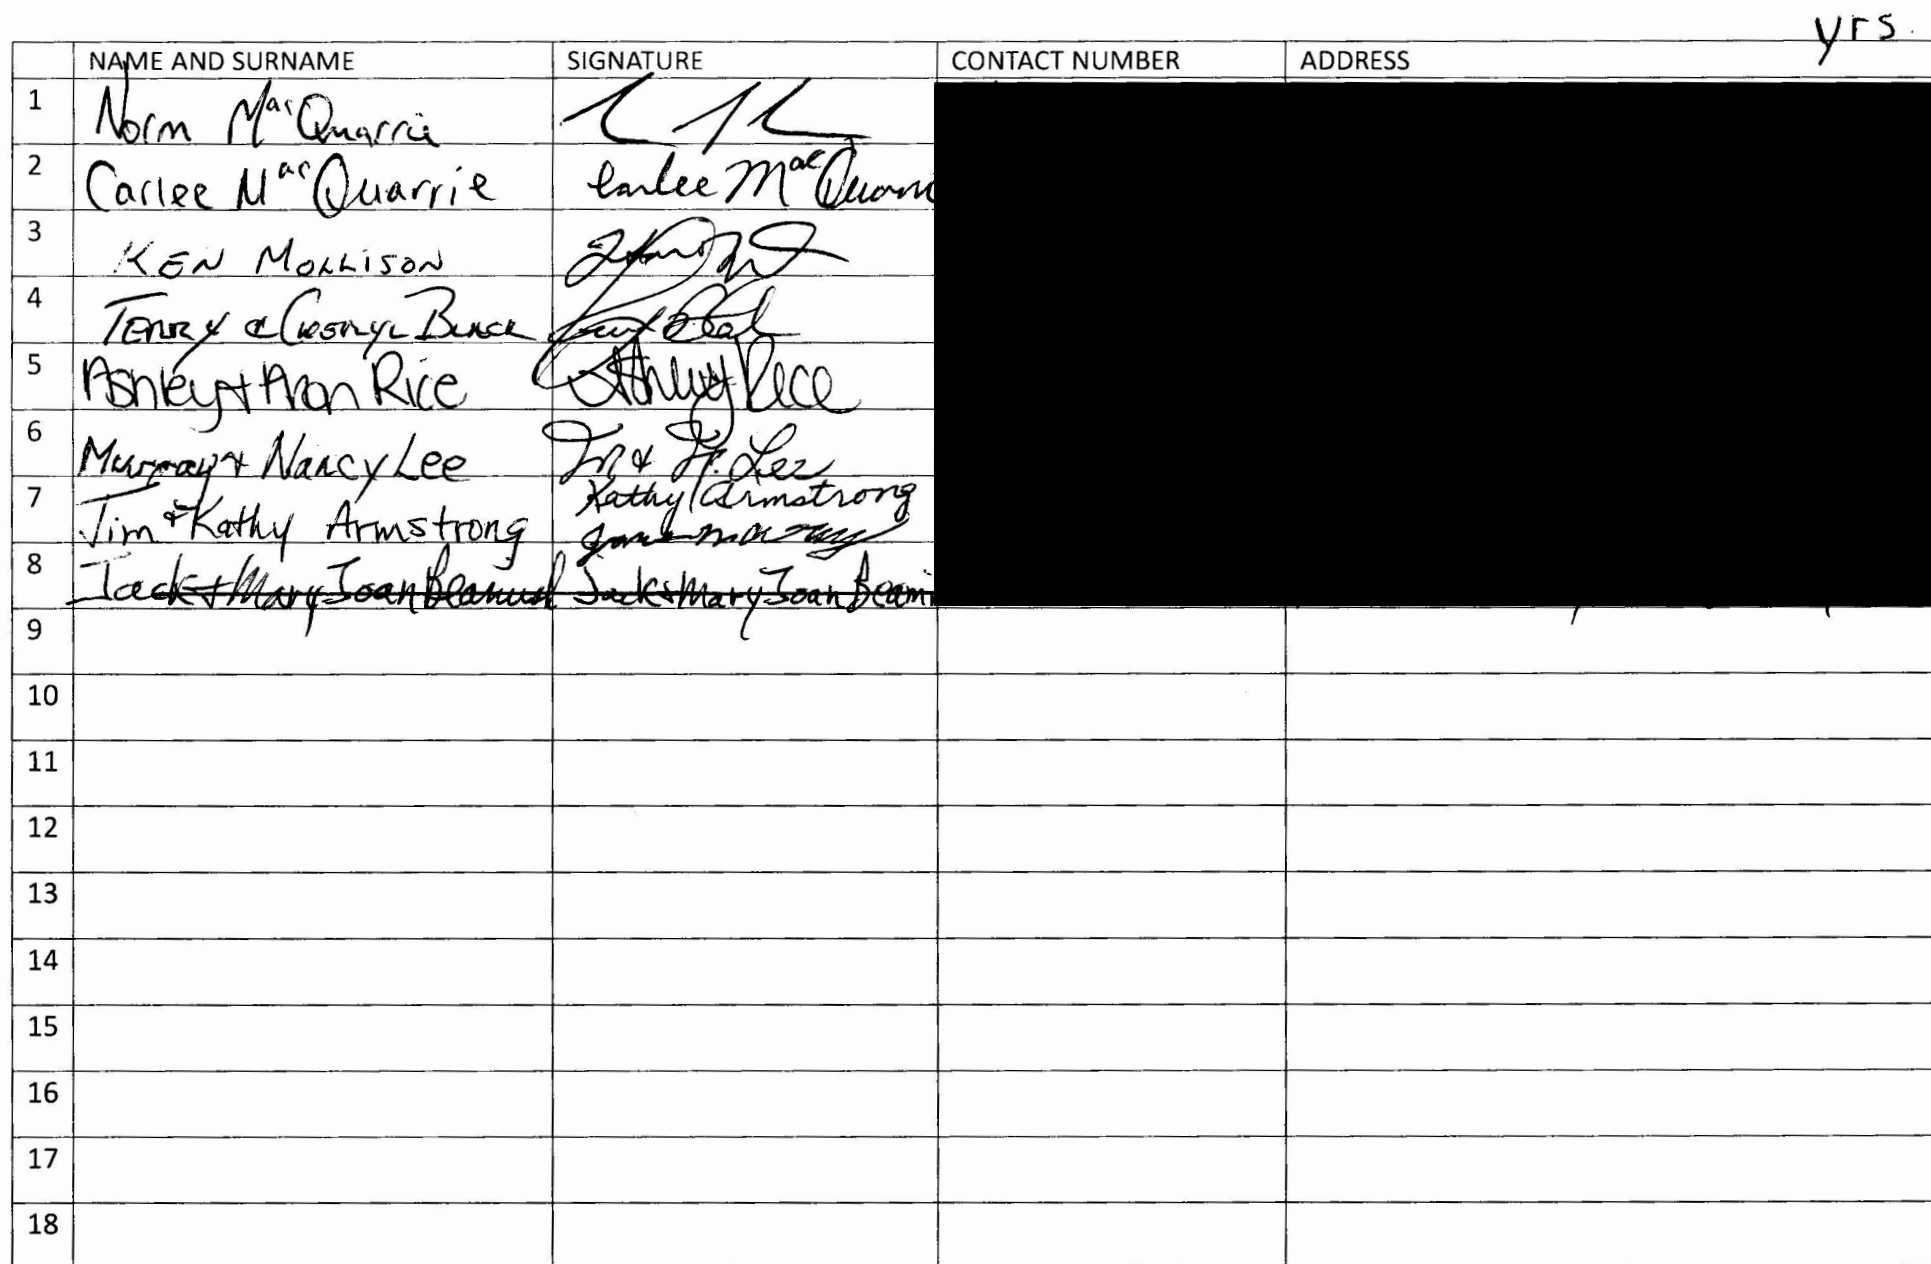 yrs.
NAME AND SURNAME SIGNATURE CONTACT NUMBER ADDRESS
1 Norm MacQuarrie
2 Carlee MacQuarrie Carlee MacQuarrie
3 KEN MOLLISON
4 TERRY & CHERYL BLACK
5 Ashley + Aron Rice Ashley Rice
6 Murray + Nancy Lee M & N. Lee
7 Jim & Kathy Armstrong Kathy Armstrong
8 Jack + Mary Joan Beamish Jack + Mary Joan Beami
9
10
11
12
13
14
15
16
17
18